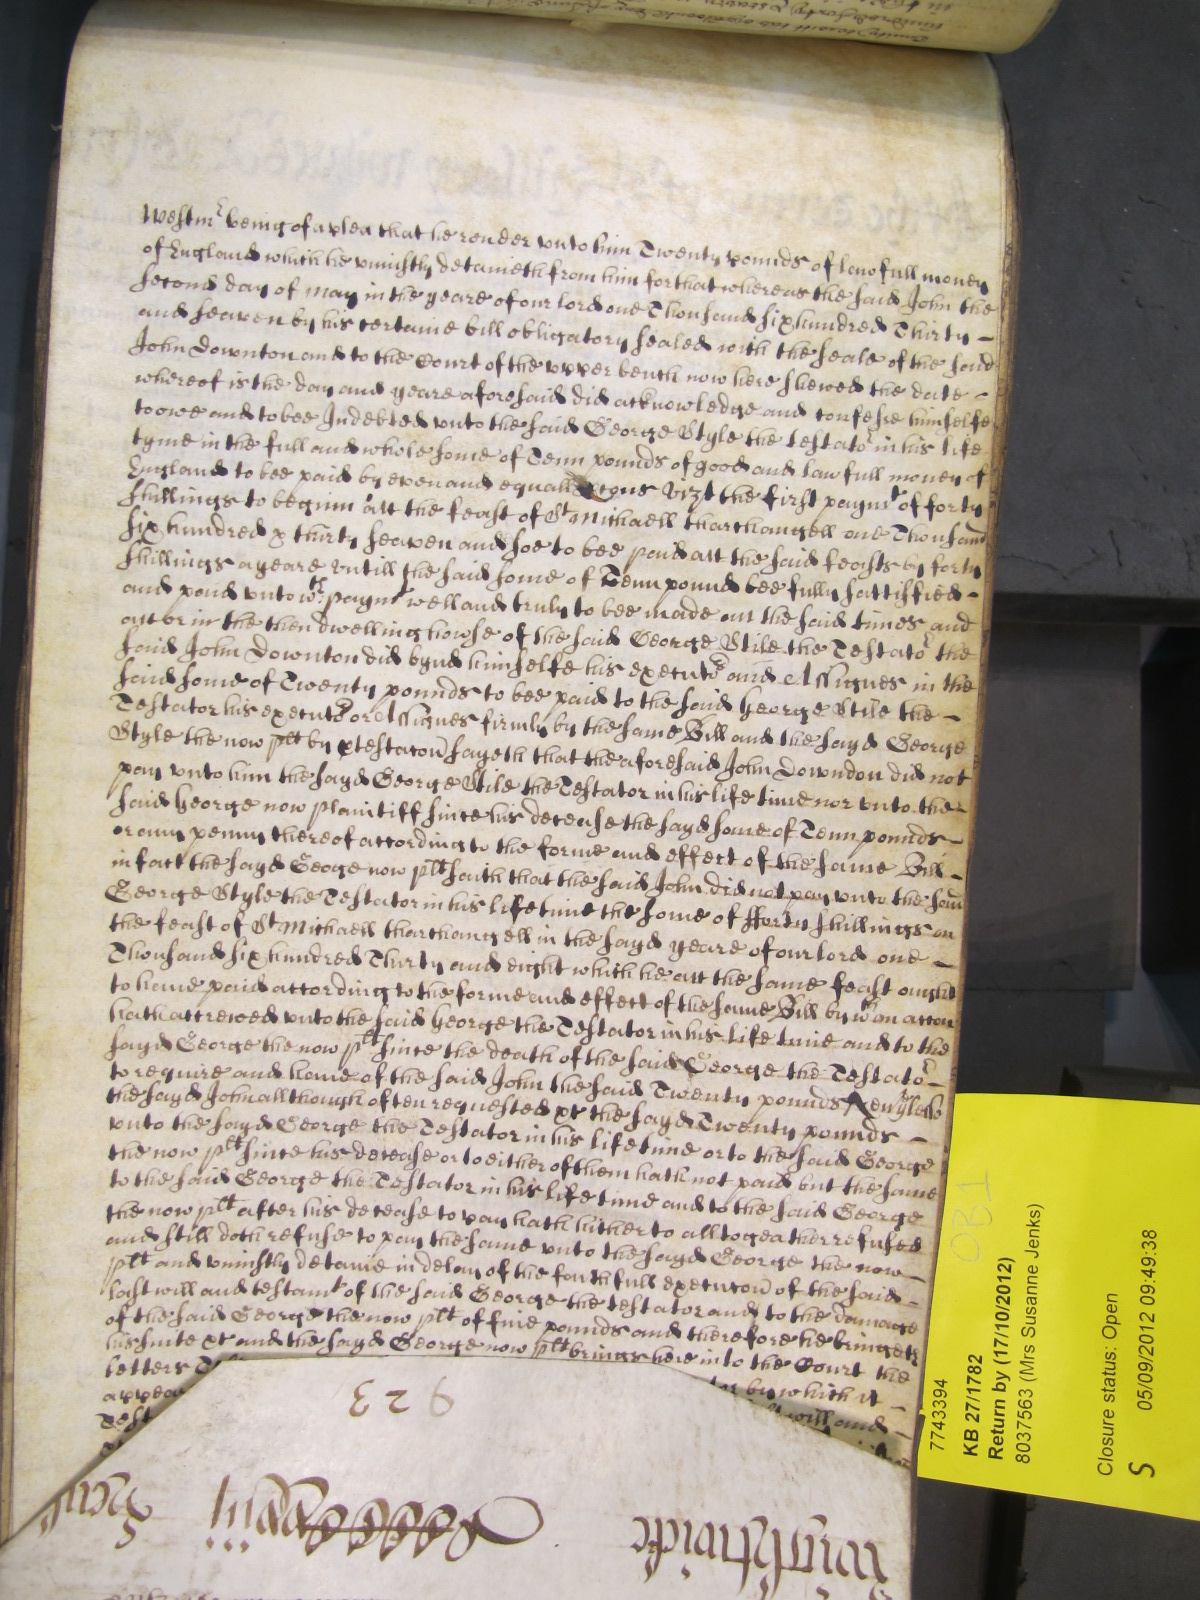 Westmr being of a plea that he render vnto him Twenty pounds of lawfull money
of England which he vniustly detaineth from him for that whereas the said John the
second day of May in the yeare of our lord one Thousand six hundred Thirty -
and seaven by his certaine bill obligatory sealed with the seale of the said
John Downton and to the Court of the vpper bench now here shewed the date -
whereof is the day and yeare aforesaid did acknowledge and confesse himselfe
to owe and to bee Indebted vnto the said George Style the testator in his life
tyme in the full and whole some of Tenn pounds of good and lawfull money of
England to bee paid by even and equall vizt the first paymt of forty
shillings to beginn att the feast of St Michaell tharchangell one Thousand
six hundred & thirty seaven and soe to bee paid att the said feasts by forty
shillings a yeare vntill the said some of Tenn pound bee fully sattisfied -
and paid vnto wch paymt well and truly to bee made att the said times and
att or in the then dwelling howse of the said George Stile the Testator the
said John Downton did bynd himselfe his executors and Assignes in the
said some of Twenty pounds to bee paid to the said George Stile the -
Testator his executors or Assignes firmly by the same Bill and the sayd George
Style the now plt by sayeth that the aforesaid John Downdon did not
pay vnto him the sayd George Stile the Testator in his life time nor vnto the
said George now plaintiff since his decease the sayd some of Tenn pounds -
or any penny thereof according to the forme and effect of the same Bill -
in fact the sayd George now plt saith that the said John did not pay vnto the said
George Style the Testator in his life time the some of fforty shillings on
the feast of St Michaell tharchangell in the sayd yeare of our lord one -
Thousand six hundred Thirty and eight which he att the same feast ought
to haue paid according to the forme and effect of the same Bill by wch an accon
hath accrewed vnto the said George the Testator in his life time and to the
sayd George the now plt since the death of the said George the Testator -
to require and haue of the said John the said Twenty pounds
the sayd John allthough often requested &c the sayd Twenty pounds -
vnto the sayd George the Testator in his life time or to the said George
the now plt since his decease or to either of them hath not paid but the same
to the said George the Testator in his life time and to the said George
the now plt after his decease to pay hath hitherto alltogeather refused
and still doth refuse to pay the same vnto the sayd George the now -
plt and vniustly detaine in delay of the faithfull execucon of the said -
last will and testamt of the said George the testator and to the damage
of the said George the now plt of fiue pounds and therefore he bringeth
his suite &c and the sayd George now plt brings here into the Court the
letters by which it -
appear will and -
Test
923
Warwicke
7743394
KB 27/1782
Return by (17/10/2012)
8037563 (Mrs Susanne Jenks)
OB1
Closure status: Open
S 05/09/2012 09:49:38